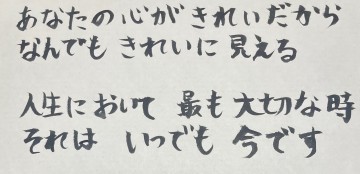 あなたの心がきれいだから
なんでも きれいに 見える
人生において 最も 大切な時
それは いつでも 今です